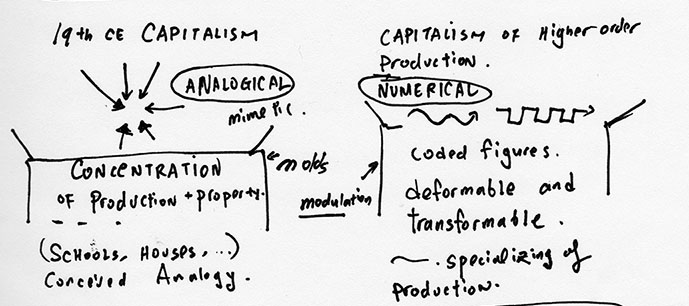 19th CE CAPITALISM
ANALOGICAL
mimetic.
CONCENTRATION
OF Production + property.
molds
(SCHOOLS, HOUSES, ...)
Conceived Analogy.
CAPITALISM OF Higher order
Production.
NUMERICAL
modulation
coded figures.
deformable and
transformable.
specializing of
production.